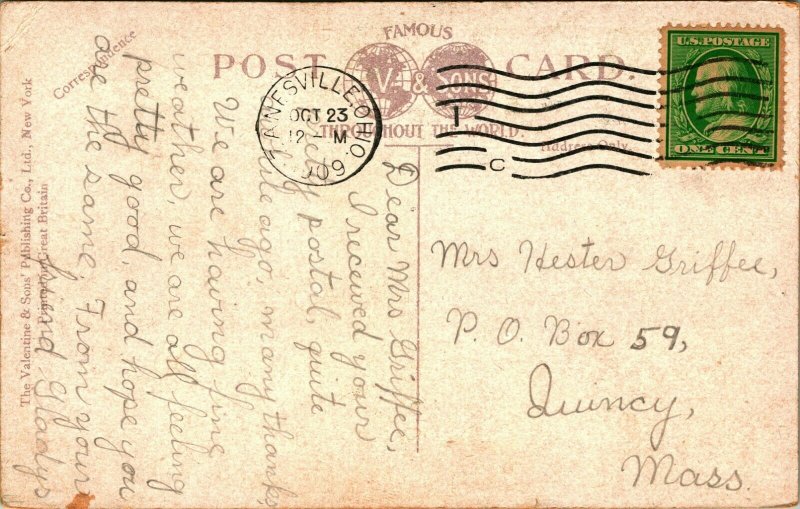 FAMOUS
POST CARD.
V. & SONS
THROUGHOUT THE WORLD.
Correspondence
Address Only.
ZANESVILLE, OHIO.
OCT 23
12 - M
1909
1
C
U.S. POSTAGE
ONE CENT
Mrs Hester Griffee,
P. O. Box 59,
Quincy,
Mass.
Dear Mrs Griffee,
I received your
postal, quite
while ago, many thanks,
We are having fine
weather, we are all feeling
pretty good, and hope you
are the same. From your
friend Gladys
The Valentine & Sons' Publishing Co., Ltd., New York
Printed in Great Britain